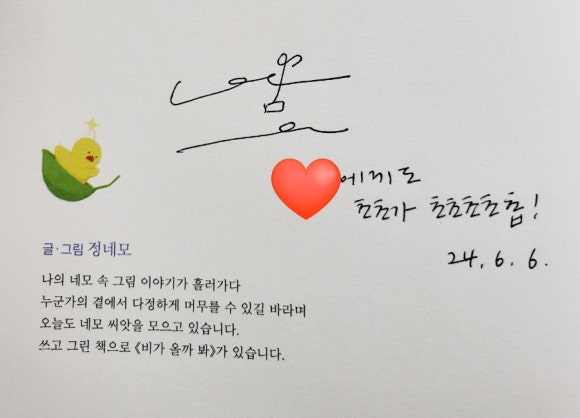 에게도
초초가 초초초초촙!
24. 6. 6.
글·그림 정네모
나의 네모 속 그림 이야기가 흘러가다
누군가의 곁에서 다정하게 머무를 수 있길 바라며
오늘도 네모 씨앗을 모으고 있습니다.
쓰고 그린 책으로 《비가 올까 봐》가 있습니다.